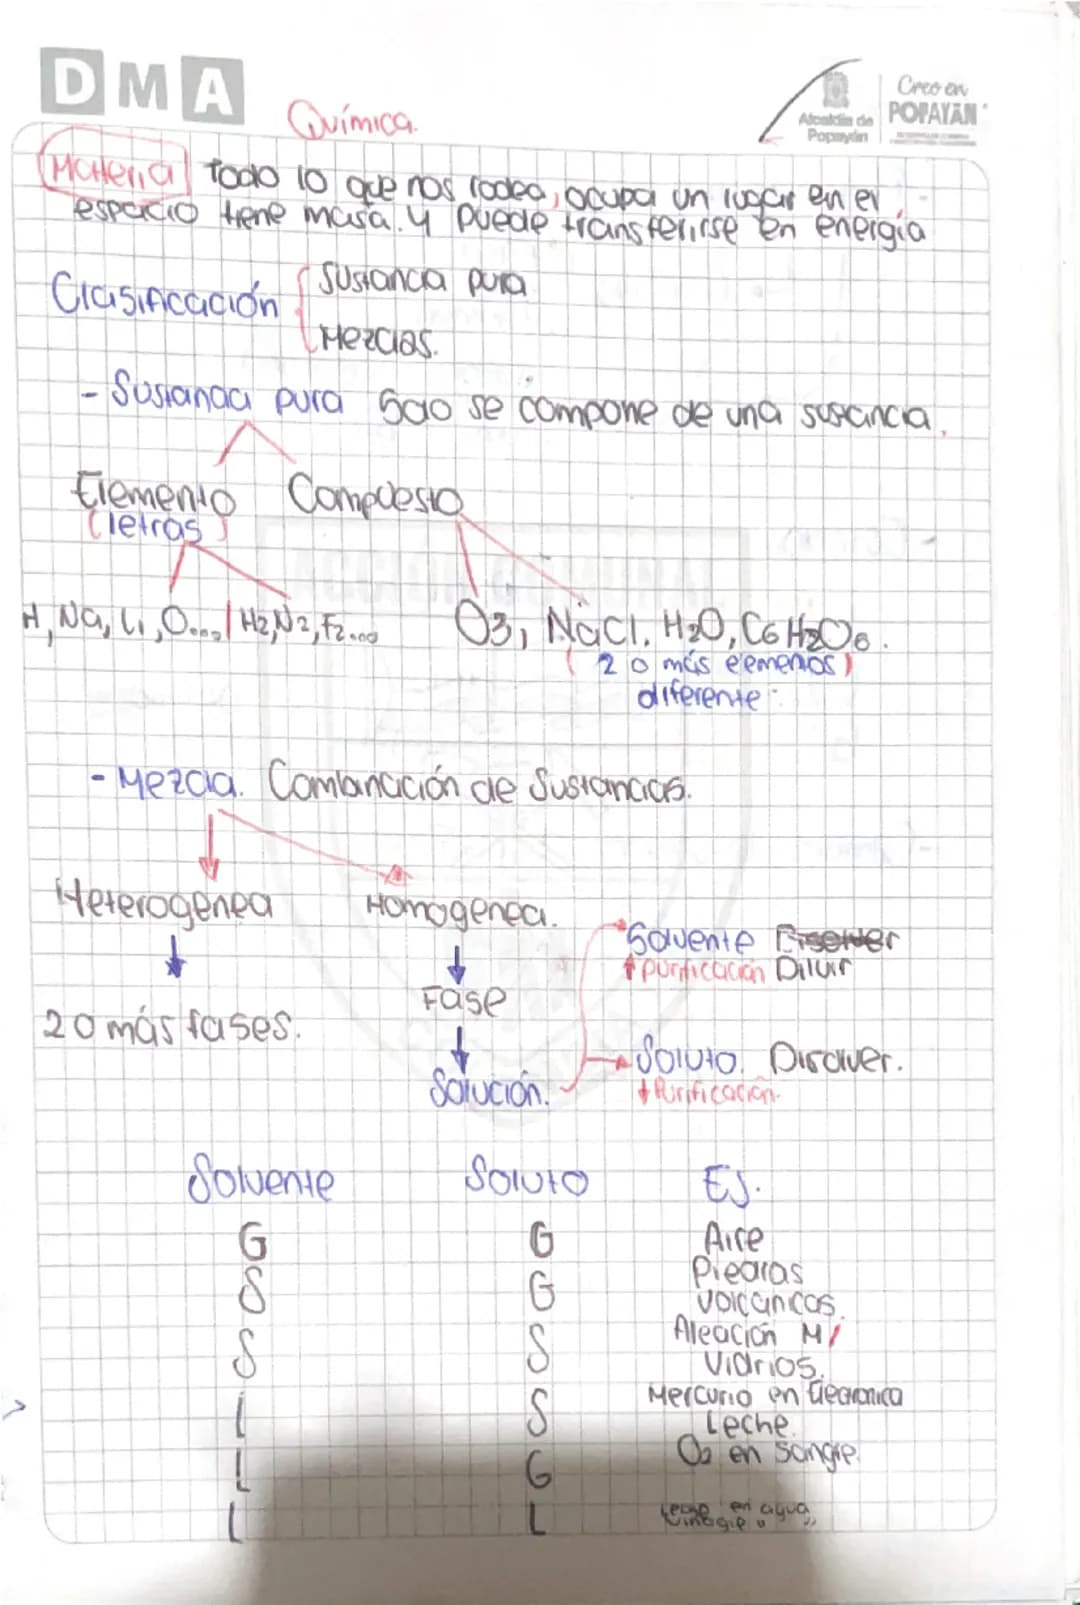 DMA
Química.
Alcaldía de Popayán
Creo en
POPAYÁN
Materia Todo lo que nos rodea, ocupa un lugar en el
espacio tiene masa. y puede transferirse en energía
Clasificación
Sustancia pura
Mezclas.
- Sustancia pura Solo se compone de una sustancia.
Elemento Compuesto
(letras)
H, Na, Li, O..., / H2, N2, F2... O3, NaCl. H2O, C6H2O6.
(2 o más elementos)
diferente
- Mezcla. Combinación de Sustancias.
Heterogenea Homogenea.
Solvente
↑ purificación Diluir
Fase
2 o más fases.
Soluto. Disolver.
Solución. ↓ Purificación.
Solvente Soluto EJ.
G G Aire
S G Piedras
volcanicas.
S S Aleación M/
Vidrios.
L S Mercurio en Electronica
Leche.
L G O2 en sangre.
L L en agua